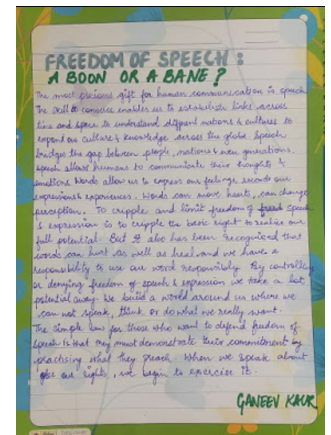 FREEDOM OF SPEECH :
A BOON OR A BANE ?
The most precious gift for human communication is speech
The skill to converse enables us to establish links across
time and space to understand different nations & cultures to
expand our culture & knowledge across the globe Speech
bridges the gap between people, nations & even generations.
Speech allows humans to communicate their thoughts &
emotions Words allow us to express our feelings records our
expressions & experiences. Words can move hearts, can change
perception. To cripple and limit freedom of speech
& expression is to cripple the basic right to realise our
full potential. But it also has been recognized that
words can hurt as well as heal and we have a
responsibility to use our word responsibly. By controlling
or denying freedom of speech & expression we take a lot
potential away. We build a world around us where we
can not speak, think or do what we really want.
The simple law for those who want to defend freedom of
speech is that they must demonstrate their commitment by
practising what they preach. When we speak about
our rights, we begin to exercise it.
GANEEV KAUR